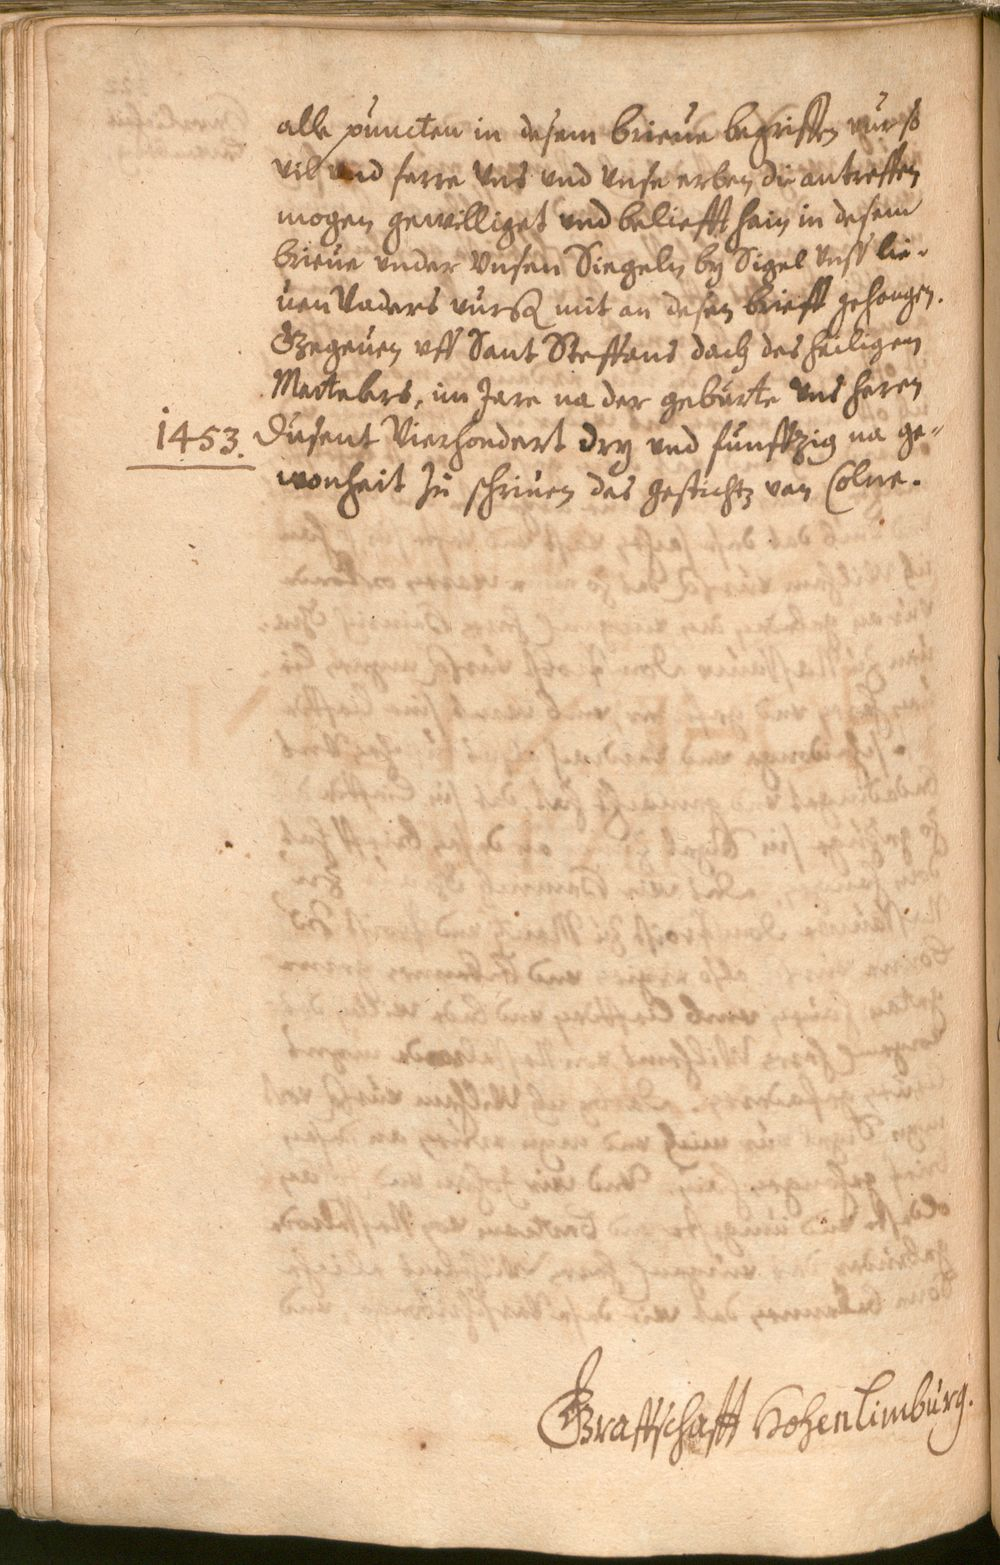 alle puncten in desem brieue begriffen vurß
vil vnd ferre vns vnd vnse erben die antreffen
mogen gewilliget vnd beliefft hain in desem
brieue vnder vnsen Siegeln by Sigel vnss lie-
uen Vaders vurß mit an desen brieff gehangen.
Gegeuen vff Sant Steffans dach des heiligen
Mertelers, im Jare na der geburte vns heren
1453. Dusent Vierhondert dry vnd funffzig na ge-
wonheit zu schriuen des gestichtz van Colne.
Graffschafft Hohenlimburg.